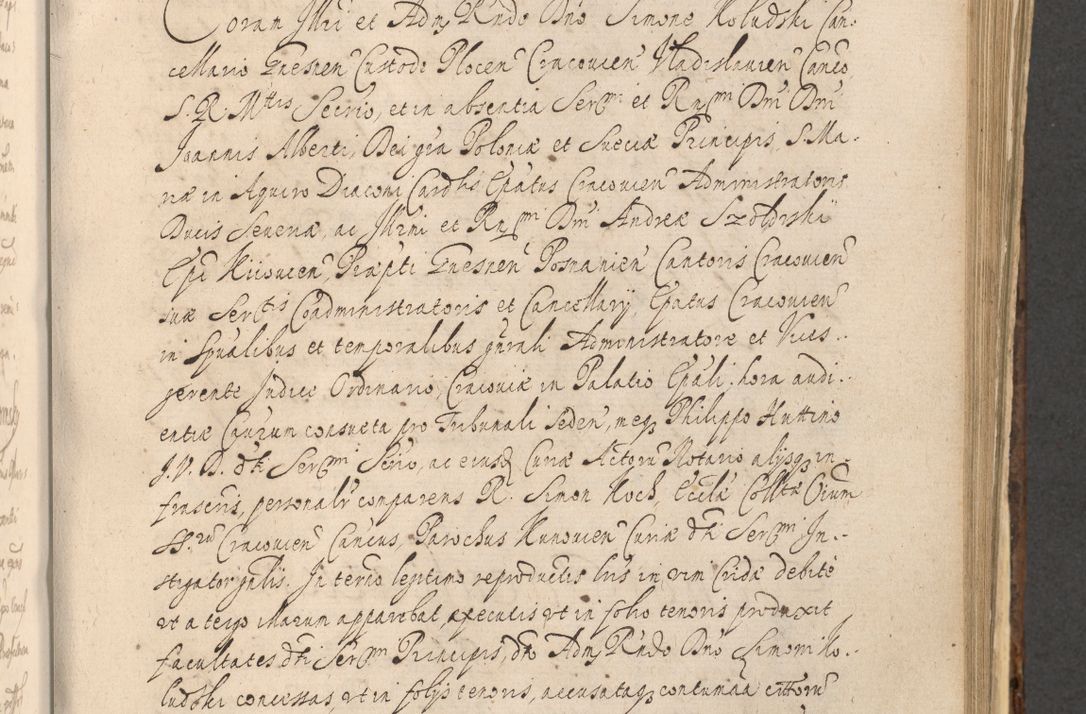 Coram Illri et Adm Rndo Dno Simone Kołudski Can-
cellario Gnesnen Custode Plocen Cracovien Vladislavien Canco
S. R. Mttis Secrio, et in absentia Sermi et Rndmi Dni Dni
Joannis Alberti, Dei gra Poloniæ et Sueciæ Principis, S. Ma-
riæ in Aquiro Diaconi Cardlis Epatus Cracovien Administratoris
Ducis Severiæ, ac Illrmi et Rndmi Dni Andreæ Szołdrski
Epi Kiiovien, Præpti Gnesnen Posnanien Cantoris Cracovien
suæ Sertis Coadministratoris et Cancellarij, Epatus Cracovien
in spualibus et temporalibus gnrali Administratore et Vices-
gerente Judice Ordinario, Cracoviæ in Palatio Epali hora audi-
entiæ Causarum consueta pro Tribunali Seden, meq Philippo Huttino
J. V. D. dti Sermi Secrio, ac eiusd Curiæ Actorum Notario alijsq in-
frascris, personalr comparens R. Simon Koch, Eccliæ Colltæ Oium
SS.rum Cracovien Cancus, Parochus Kunovien Curiæ dti Sermi In-
stigator gnlis. In termo legitimo reproductis lris in vim Cridæ debite
ut a tergo illarum apparebat executis ut in folio tenoris produxit
facultates dti Sermi Principis, dto Adm Rndo Dno Simoni Ko-
ludski concessas, ut in folijs tenoris, accusataq contumaa cittorum